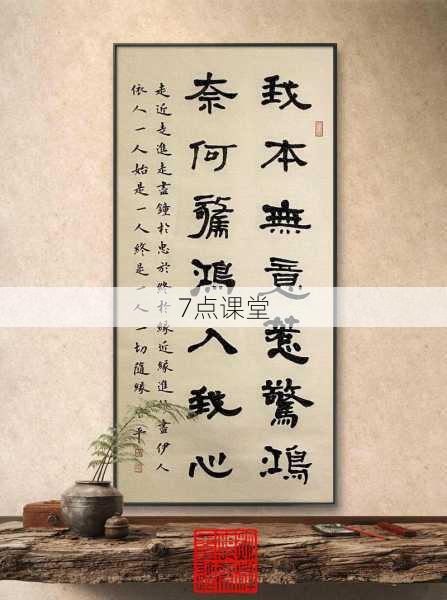 我本無意惹驚鴻
奈何驚鴻入我心
走近走進走盡鐘於忠於終於緣近緣進盡伊人
依人一人始是一人終是一人一切隨緣
7点课堂